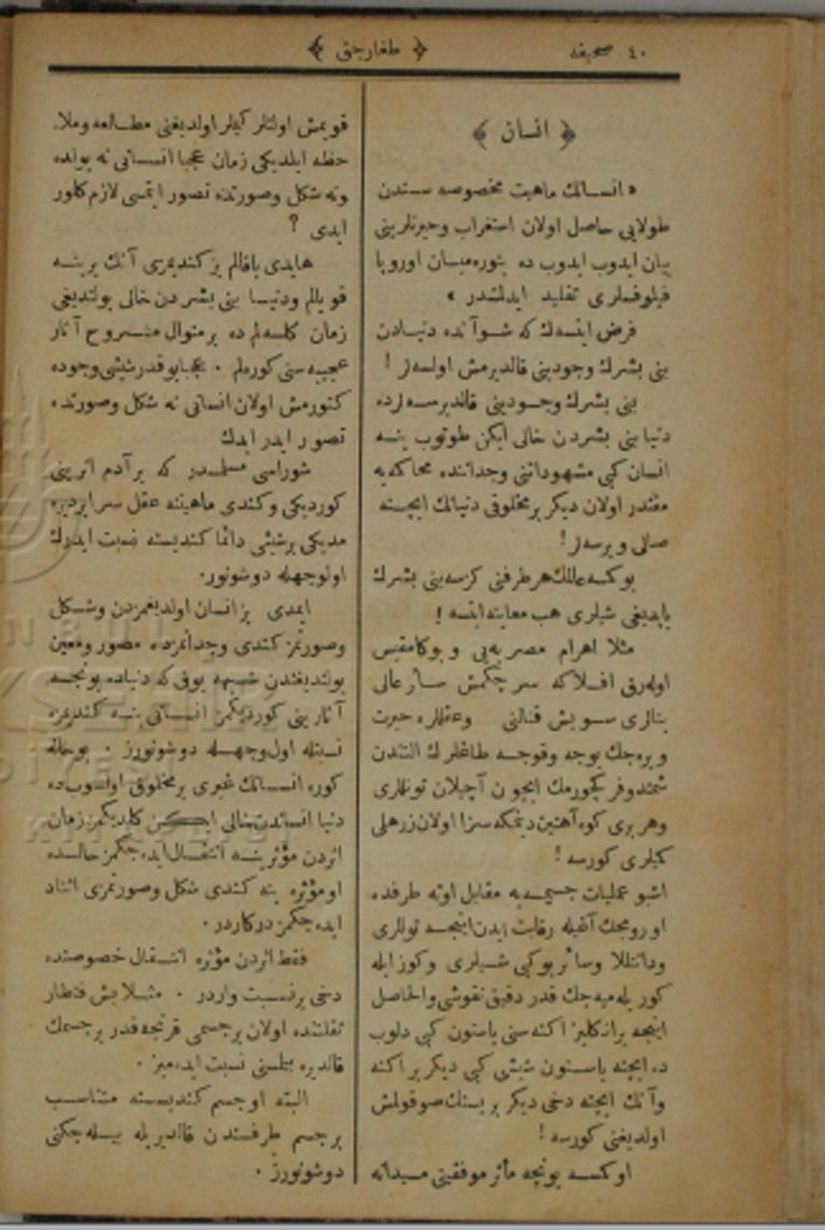 ٤٠ صحیفه
﴿ طغارجق ﴾
﴿ انسان ﴾
« انسانك ماهیت مخصوصه سندن
طولایی حاصل اولان استغراب وحیرتلرینی
بیان ایدوب ایدوب ده ینوره میان اوروپا
فیلوفلری تقلید ایدلشدر »
فرض ایتسه ك که شو آنده دنیادن
بنی بشرك وجودینی قالدیرمش اولسه لر !
بنی بشرك وجودینی قالدیرسه لرده
دنیا بنی بشردن خالی ایکن طوتوب ینه
انسان کبی مشهوداتنی وجداننده محاکه یه
مقتدر اولان دیکر بر مخلوقی دنیانك ایچنه
صالی ویرسه لر !
بو کسه عالمك هر طرفنی کزسه بنی بشرك
یاپدیغی شیلری هب معاینه ایتسه !
مثلا اهرام مصریه یی و بوکا مقیس
اوله رق افلاکه سر چکمش سائر عالی
بنالری سویش قنالنی وعقللره حیرت
ویره جك یوجه وقوجه طاغلرك التندن
شمندوفر کچورمك ایچون آچیلان تونللری
وهر بری کوه آهنین دینمکه سزا اولان زرهلی
کمیلری کورسه !
اشبو عملیات جسیمه یه مقابل اوته طرفده
اورومجك آغیله رقابت ایدن اینجه توللری
ودانتللا وسائر بوکبی شیلری وکوز ایله
کوریله میه جك قدر دقیق نقوشی والحاصل
اینجه بر انکلیز اکنه سنی یاستون کبی دلوب
ده ایچنه یاستون شیشی کبی دیکر بر اکنه
وآنك ایچنه دخی دیکر برینك صوقولمش
اولدیغنی کورسه !
اوکسه بونجه مآثر موفقیتی میدانه
قویمش اولنلر کیلر اولدیغنی مطالعه وملا۔
حظه ایلدیکی زمان عجبا انسانی نه یولده
ونه شکل وصورتده تصور ایتمسی لازم کلور
ایدی ؟
هایدی باقالم بز کندیمزی آنك یرینه
قویالم ودنیا بنی بشردن خالی بولندیغی
زمان کلسه لم ده بر منوال مشروح آثار
عجیبه سنی کوره لم . عجبا بو قدر شیئی وجوده
کتورمش اولان انسانی نه شکل وصورتده
تصور ایدر ایدك
شوراسی مسلمدر که بر آدم اثرینی
کوردیکی وکندی ماهیتنه عقل سر ایردیره
مدیکی بر شیئی دائما کندیسنه نسبت ایدرك
اولوجهله دوشونور.
ایمدی بز انسان اولدیغمزدن وشکل
وصورتمز کندی وجدانمزده مصور ومعین
بولندیغندن شبهه یوقی که دنیاده بونجه
آثارینی کوردیکمز انسانی ینه کندیمزه
نسبتله اول وجهله دوشونورز . بو حالده
کوره انسانك غیری بر مخلوق اولوب ده
دنیا انساندن خالی ایکن کلدیکمز زمان
اثردن مؤثرینه انتقال ایده جکمز حالده
او مؤثره ینه کندی شکل وصورتمزی اسناد
ایده جکمز درکاردر .
فقط اثردن مؤثره انتقال خصوصنده
دخی بر نسبت واردر . مثلا بش قنطار
ثقلتنده اولان بر جسمی قرنجه قدر بر جسمك
قالدیره بیلسنی نسبت ایده میز .
البته او جسم کندیسنه متناسب
بر جسم طرفندن قالدیریله بیله جکنی
دوشونورز .